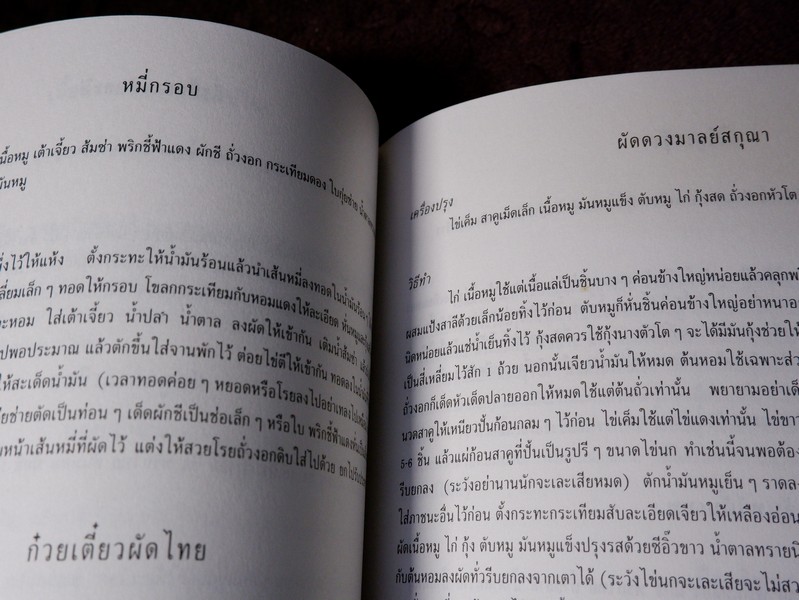 หมี่กรอบ
เนื้อหมู เต้าเจี้ยว ส้มซ่า พริกชี้ฟ้าแดง ผักชี ถั่วงอก กระเทียมดอง ใบกุยช่าย
มันหมู
ไว้ให้แห้ง ตั้งกระทะให้น้ำมันร้อนแล้วนำเส้นหมี่ลงทอดในน้ำมันร้อน ๆ
เล็ก ๆ ทอดให้กรอบ โขลกกระเทียมกับหอมแดงให้ละเอียด
หอม ใส่เต้าเจี้ยว น้ำปลา น้ำตาล ลงผัดให้เข้ากัน เติมน้ำส้มซ่า
พอประมาณ แล้วตักขึ้นใส่จานพักไว้ ต่อยไข่ตีให้เข้ากัน ทอดลงใน
ให้สะเด็ดน้ำมัน (เวลาทอดค่อย ๆ หยอดหรือโรยลงไปอย่าเทลงไป
ตัดเป็นท่อน ๆ เด็ดผักชีเป็นช่อเล็ก ๆ หรือใบ พริกชี้ฟ้าแดง
หน้าเส้นหมี่ที่ผัดไว้ แต่งให้สวยโรยถั่วงอกดิบใส่ไปด้วย
ก๋วยเตี๋ยวผัดไทย
ผัดดวงมาลย์สกุณา
เครื่องปรุง
ไข่เค็ม สาคูเม็ดเล็ก เนื้อหมู มันหมูแข็ง ตับหมู ไก่ กุ้งสด ถั่วงอกหัวโต
วิธีทำ
ไก่ เนื้อหมูใช้แต่เนื้อแล่เป็นชิ้นบาง ๆ ค่อนข้างใหญ่หน่อยแล้วคลุก
ผสมแป้งสาลีด้วยเล็กน้อยทิ้งไว้ก่อน ตับหมูก็หั่นชิ้นค่อนข้างใหญ่อย่าหนา
นิดหน่อยแล้วแช่น้ำเย็นทิ้งไว้ กุ้งสดควรใช้กุ้งนางตัวโต ๆ จะได้มีมันกุ้งช่วยให้
เป็นสี่เหลี่ยมไว้สัก 1 ถ้วย นอกนั้นเจียวน้ำมันให้หมด ต้นหอมใช้เฉพาะ
ถั่วงอกก็เด็ดหัวเด็ดปลายออกให้หมดใช้แต่ต้นถั่วเท่านั้น พยายามอย่า
นวดสาคูให้เหนียวปั้นก้อนกลม ๆ ไว้ก่อน ไข่เค็มใช้แต่ไข่แดงเท่านั้น ไข่ขาว
5-6 ชิ้น แล้วแผ่ก้อนสาคูที่ปั้นเป็นรูปรี ๆ ขนาดไข่นก ทำเช่นนี้จนพอต้อง
รีบยกลง (ระวังอย่านานนักจะเละเสียหมด) ตักน้ำมันหมูเย็น ๆ ราดลง
ใส่ภาชนะอื่นไว้ก่อน ตั้งกระทะกระเทียมสับละเอียดเจียวให้เหลืองอ่อน
ผัดเนื้อหมู ไก่ กุ้ง ตับหมู มันหมูแข็งปรุงรสด้วยซีอิ๊วขาว น้ำตาลทราย
กับต้นหอมลงผัดทั่วรีบยกลงจากเตาได้ (ระวังไข่นกจะเละเสียจะไม่สวย